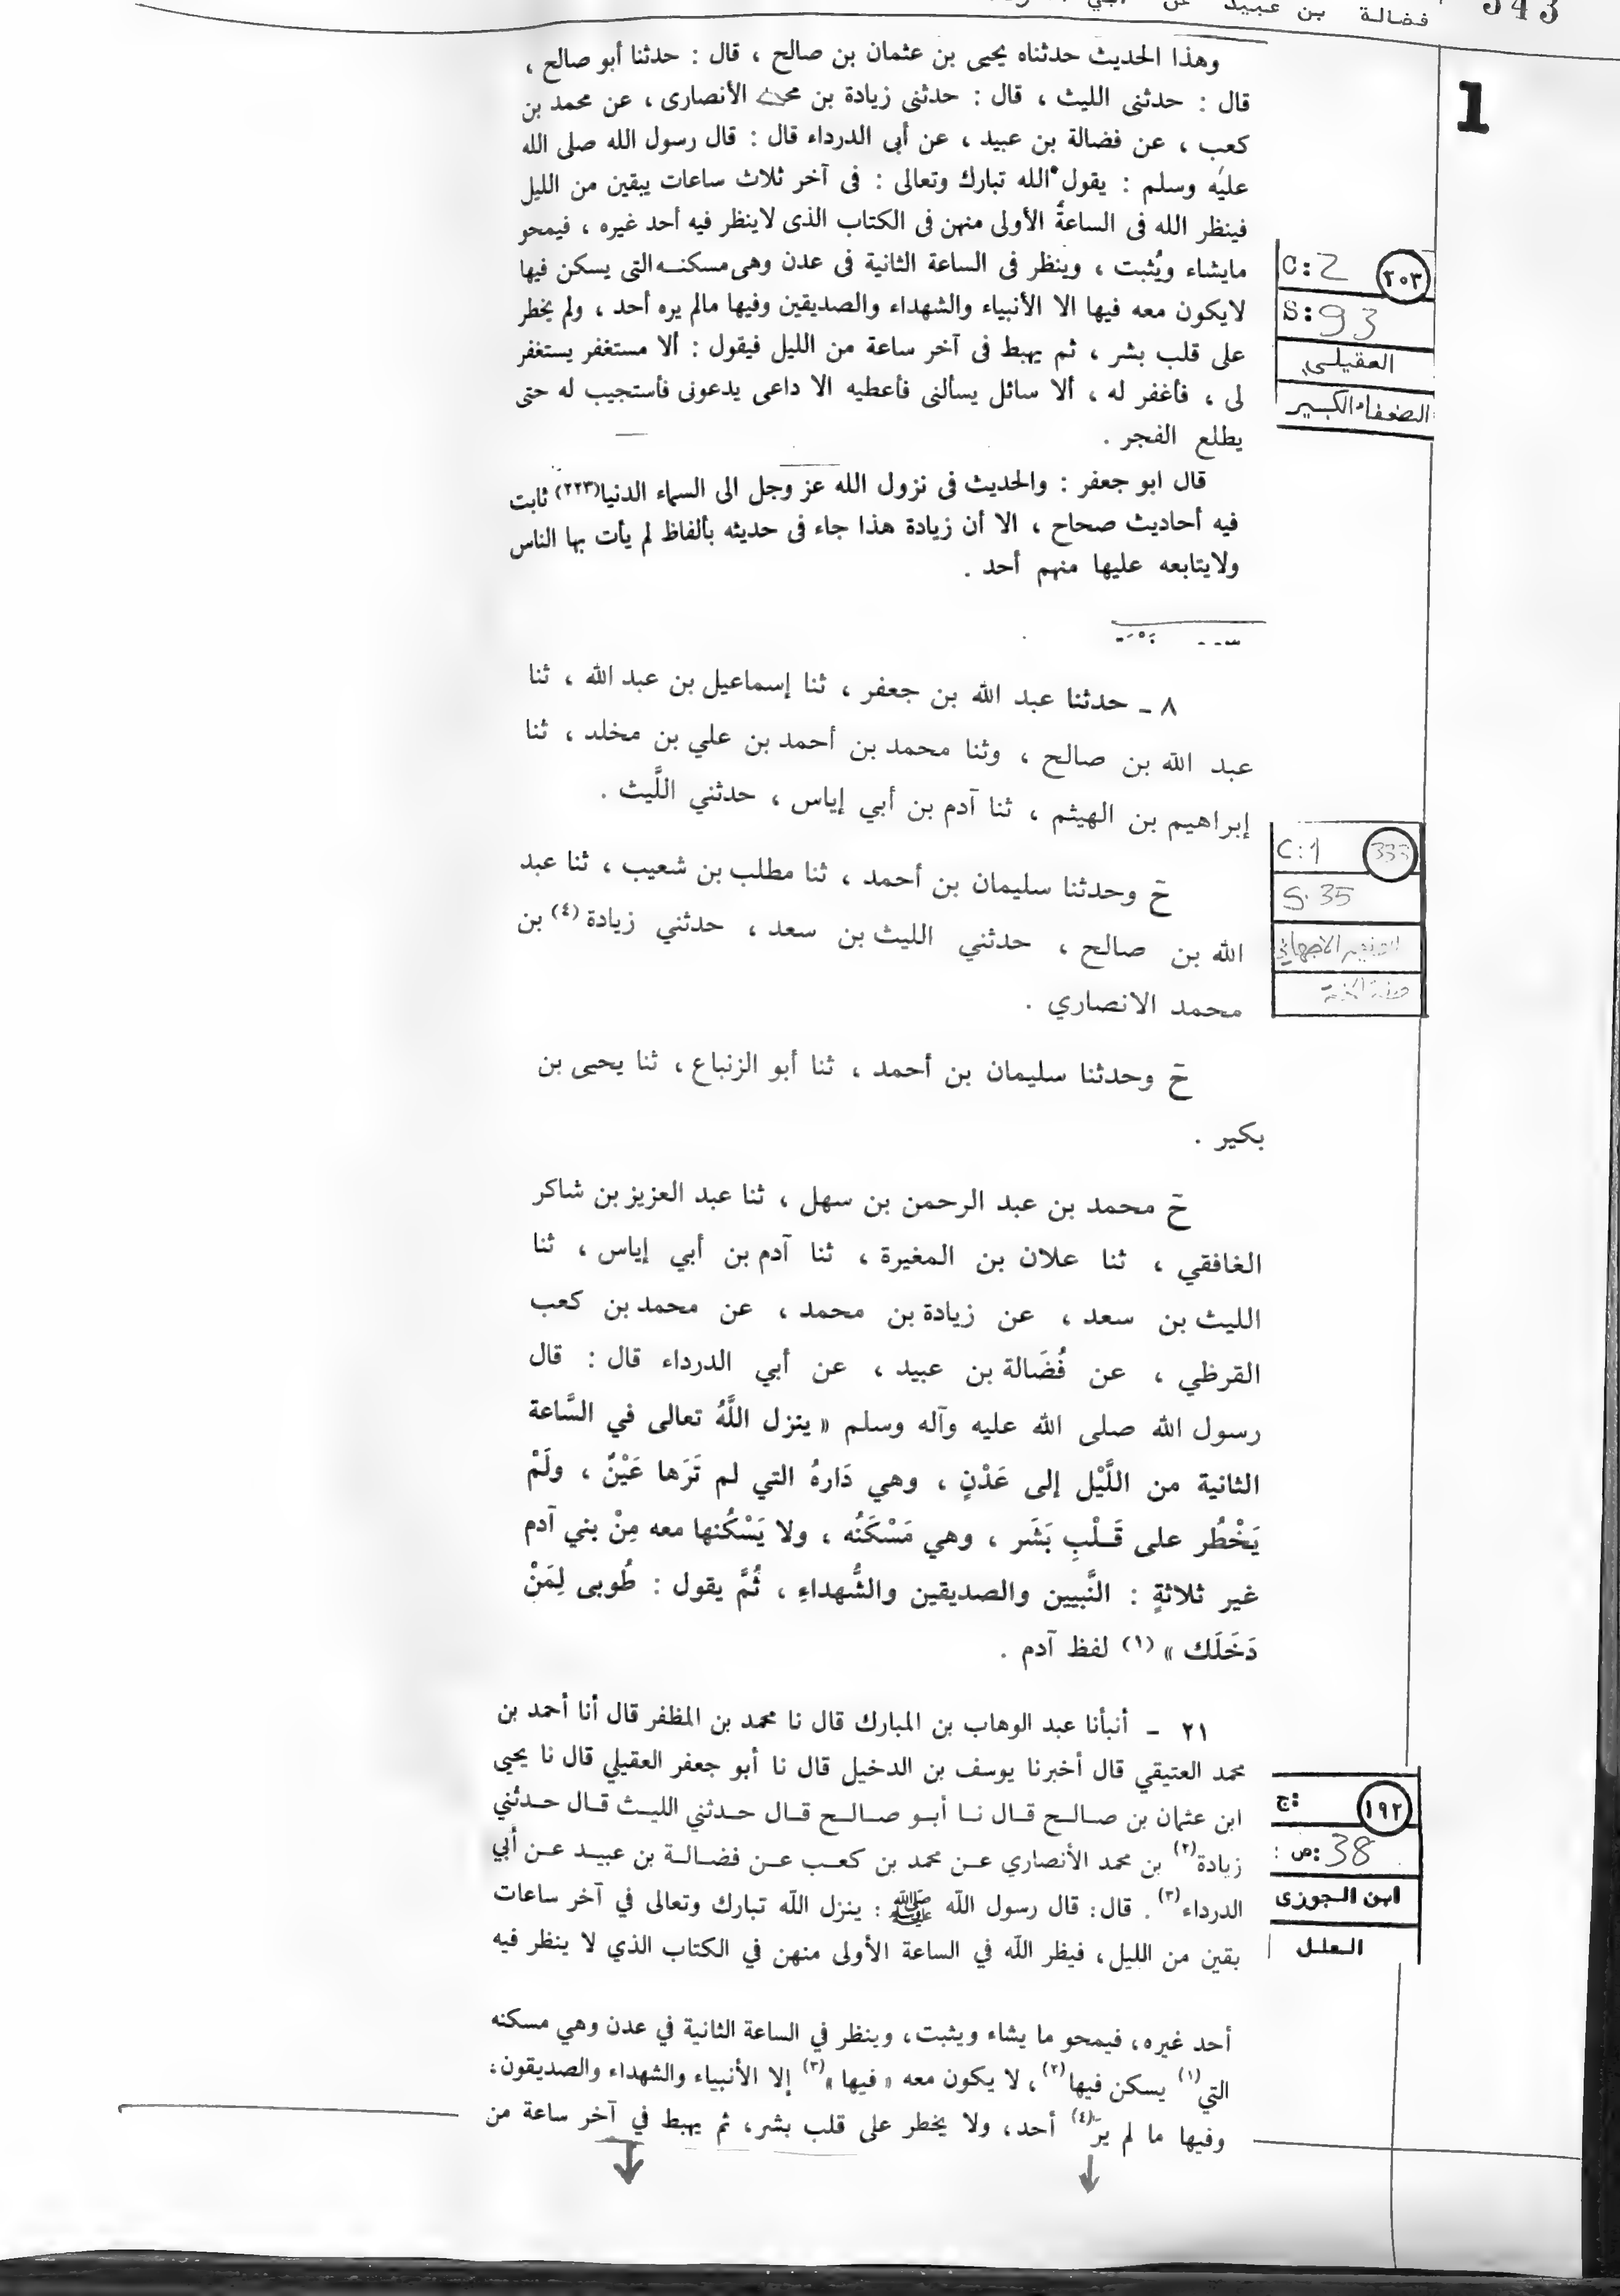 543
فضالة بن عبيد عن
1
وهذا الحديث حدثناه يحيى بن عثمان بن صالح ، قال : حدثنا أبو صالح ،
قال : حدثنى الليث ، قال : حدثنى زيادة بن محمد الأنصارى ، عن محمد بن
كعب ، عن فضالة بن عبيد ، عن أبى الدرداء قال : قال رسول الله صلى الله
عليه وسلم : يقول الله تبارك وتعالى : فى آخر ثلاث ساعات يبقين من الليل
فينظر الله فى الساعة الأولى منهن فى الكتاب الذى لاينظر فيه أحد غيره ، فيمحو
مايشاء ويُثبت ، وينظر فى الساعة الثانية فى عدن وهى مسكنه التى يسكن فيها
لايكون معه فيها الا الأنبياء والشهداء والصديقين وفيها مالم يره أحد ، ولم يخطر
على قلب بشر ، ثم يهبط فى آخر ساعة من الليل فيقول : ألا مستغفر يستغفر
لى ، فأغفر له ، ألا سائل يسألنى فأعطيه الا داعى يدعونى فأستجيب له حتى
يطلع الفجر .
C: 2 ٢٠٣
S: 93
العقيلي
الضعفاء الكبير
قال ابو جعفر : والحديث فى نزول الله عز وجل الى السماء الدنيا(٢٢٣) ثابت
فيه أحاديث صحاح ، الا أن زيادة هذا جاء فى حديثه بألفاظ لم يأت بها الناس
ولايتابعه عليها منهم أحد .
٨ ـ حدثنا عبد الله بن جعفر ، ثنا إسماعيل بن عبد الله ، ثنا
عبد الله بن صالح ، وثنا محمد بن أحمد بن علي بن مخلد ، ثنا
إبراهيم بن الهيثم ، ثنا آدم بن أبي إياس ، حدثني اللَّيث .
حَ وحدثنا سليمان بن أحمد ، ثنا مطلب بن شعيب ، ثنا عبد
الله بن صالح ، حدثني الليث بن سعد ، حدثني زيادة (٤) بن
محمد الانصاري .
C: 1 333
S. 35
حَ وحدثنا سليمان بن أحمد ، ثنا أبو الزنباع ، ثنا يحيى بن
بكير .
حَ محمد بن عبد الرحمن بن سهل ، ثنا عبد العزيز بن شاكر
الغافقي ، ثنا علان بن المغيرة ، ثنا آدم بن أبي إياس ، ثنا
الليث بن سعد ، عن زيادة بن محمد ، عن محمد بن كعب
القرظي ، عن فُضَالة بن عبيد ، عن أبي الدرداء قال : قال
رسول الله صلى الله عليه وآله وسلم « ينزل اللَّهُ تعالى في السَّاعة
الثانية من اللَّيْل إلى عَدْنٍ ، وهي دَارهُ التي لم تَرَها عَيْنٌ ، ولَمْ
يَخْطُر على قَلْبِ بَشَر ، وهي مَسْكَنُه ، ولا يَسْكُنها معه مِنْ بني آدم
غير ثلاثةٍ : النَّبيين والصديقين والشُّهداءِ ، ثُمَّ يقول : طُوبى لِمَنْ
دَخَلَك » (١) لفظ آدم .
٢١ ـ أنبأنا عبد الوهاب بن المبارك قال نا محمد بن المظفر قال أنا أحمد بن
محمد العتيقي قال أخبرنا يوسف بن الدخيل قال نا أبو جعفر العقيلي قال نا يحيى
ابن عثمان بن صالح قال نا أبو صالح قال حدثني الليث قال حدثني
زيادة(٢) بن محمد الأنصاري عن محمد بن كعب عن فضالة بن عبيد عن أبي
الدرداء(٣) . قال: قال رسول الله ﷺ : ينزل الله تبارك وتعالى في آخر ساعات
بقين من الليل، فيظر الله في الساعة الأولى منهن في الكتاب الذي لا ينظر فيه
ج: ١٩٢
ص: 38
ابن الجوزى
العلل
أحد غيره، فيمحو ما يشاء ويثبت، وينظر في الساعة الثانية في عدن وهي مسكنه
التي(١) يسكن فيها(٢)، لا يكون معه « فيها »(٣) إلا الأنبياء والشهداء والصديقون،
وفيها ما لم يرَ(٤) أحد، ولا يخطر على قلب بشر، ثم يهبط في آخر ساعة من